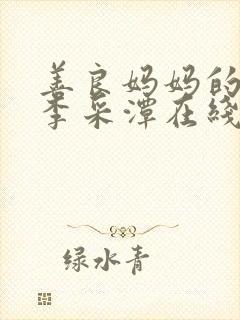 善良妈妈的
李采潭在线
绿水青